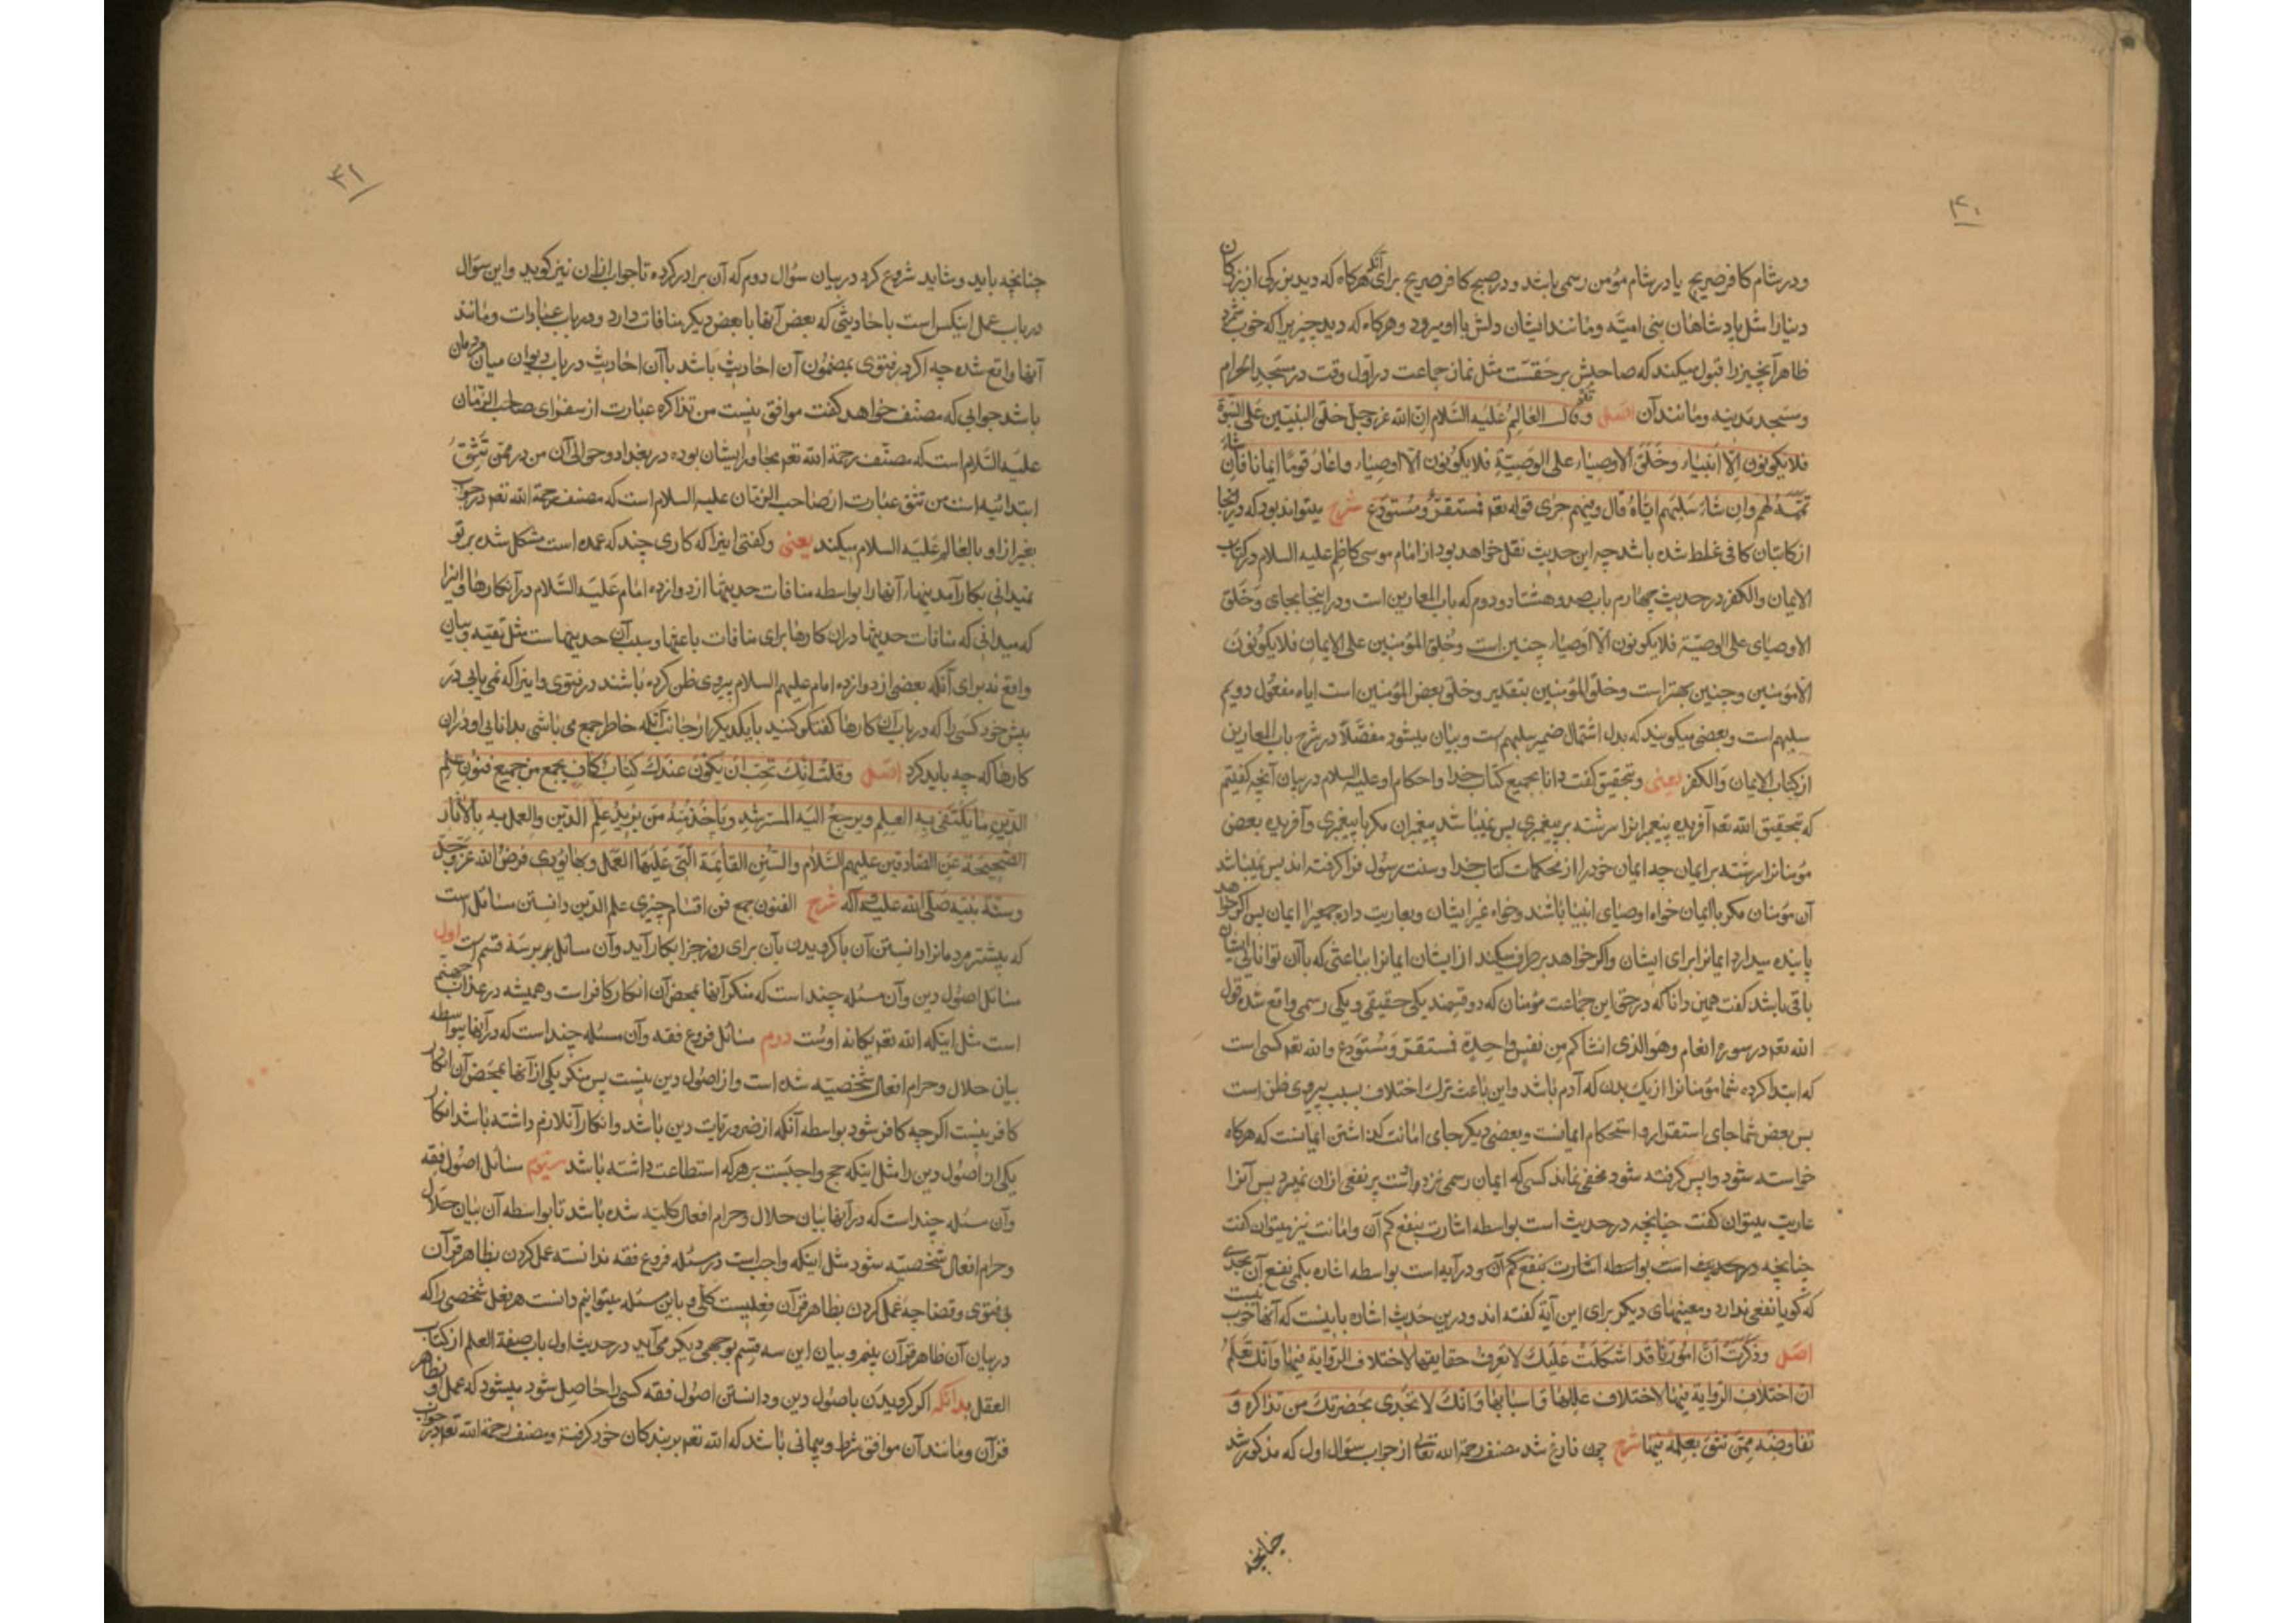 ۴۰
ودر شام کافر صریح یا در شام مؤمن رسمی باشد و در صبح کافر صریح برای آنکه هرگاه که دید بزرگی از بزرگان
دینار امثل پادشاهان بنی امیّه ومانند ایشان دلش با او میرود وهرگاه که دید چیزیرا که خوب شمرد
ظاهرآنچیز را قبول میکند که صاحبش بر حقست مثل نماز جماعت در اول وقت در مسجد الحرام
ومسجد مدینه ومانند آن اصل وقد قال العالم علیه السّلام انّ الله عز وجل خلق النبیّین علی النبوّة
فلا یکونون الا انبیاء وخلق الاوصیاء علی الوصیّة فلا یکونون الا اوصیاء واعار قوماً ایمانا فان شاء
تمّمه لهم وان شاء سلبهم ایّاه قال وفیهم جری قوله تعه فمستقرّ ومستودع شرح میتواند بود که در اینجا
از کاتبان کافی غلط شده باشد چه این حدیث نقل خواهد بود از امام موسی کاظم علیه السلام در کتاب
الایمان والکفر در حدیث چهارم باب صد وهشتاد ودوم که باب المعارین است ودر اینجا بجای وخلق
الاوصیای علی الوصیّة فلا یکونون الّا اوصیاء چنین است وخلق المؤمنین علی الایمان فلا یکونون
الّا مؤمنین وچنین بهتر است وخلق المؤمنین بتقدیر وخلق بعض المؤمنین است ایاه مفعول دویم
سلبهم است وبعضی میگویند که بدل اشتمال ضمیر سلبهم است وبیان میشود مفصّلاً در شرح باب المعارین
از کتاب الایمان والکفر یعنی وبتحقیق گفت دانا بجمیع کتاب خدا واحکام او علیه السلام در بیان آنچه گفتیم
که بتحقیق الله تعه آفریده پیغمبرانرا سرشته بر پیغمبری پس نمیباشد پیغمبران مگر با پیغمبری وآفریده بعض
مؤمنانرا سرشته بر ایمان چه ایمان خود را از محکمات کتاب خدا وسنت رسول فرا گرفته اند پس نمیباشد
آن مؤمنان مگر با ایمان خواه اوصیای انبیا باشند وخواه غیر ایشان وبعاریت داده جمعیرا ایمان پس اگر خواهد
پاینده میدارد ایمانرا برای ایشان واگر خواهد بر طرف میکند از ایشان ایمانرا بباعثی که با آن توانائی ایشان
باقی باشد گفت همین دانا که در حق این جماعت مؤمنان که دو قسمند یکی حقیقی ویکی رسمی واقع شده قول
الله تعه در سوره انعام وهو الذی انشأکم من نفس واحدة فمستقرّ ومستودع والله تعه کسی است
که ابتدا کرده شما مؤمنانرا از یک بدن که آدم باشد واین باعث ترک اختلاف بسبب پیروی ظن است
پس بعض شما جای استقرار واستحکام ایمانست وبعضی دیگر جای امانت گذاشتن ایمانست که هرگاه
خواسته شود واپس گرفته شود مخفی نماند کسی که ایمان رسمی نزد اوست پر نفعی از ان نمیبرد پس آنرا
عاریت میتوان گفت چنانچه در حدیث است بواسطه اشارت بنفع کم آن وامانت نیز میتوان گفت
چنانچه در حدیث است بواسطه اشارت بنفع کم آن ودر آیه است بواسطه اشاره بکمی نفع آن بحدی
که گویا نفعی ندارد ومعنیهای دیگر برای این آیة گفته اند ودرین حدیث اشاره باینست که آنها خوب نیست
اصل وذکرت انّ اموراً قد اشکلت علیک لا تعرف حقایقها لاختلاف الروایة فیها وانّک تعلم
انّ اختلاف الروایة فیها لاختلاف عللها واسبابها وانک لا تجد بحضرتک من تذاکره و
تفاوضه ممّن تثق بعلمه فیها شرح چون فارغ شد مصنف رحمة الله تعالی از جواب سؤال اول که مذکور شد
چنانچه
۴۱
چنانچه باید وشاید شروع کرد در بیان سؤال دوم که آن برادر کرده تا جواب ازان نیز گوید واین سؤال
در باب عمل اینکس است باحادیثی که بعض آنها با بعض دیگر منافات دارد ودر باب عبادات ومانند
آنها واقع شده چه اگر در فتوی بمضمون آن احادیث باشد یا آن احادیث در باب دیوان میان مردمان
باشد جوابی که مصنّف خواهد گفت موافق نیست من تذاکره عبارت از سفرای صاحب الزّمان
علیه السّلام است که مصنّف رحمة الله تعه مجاور ایشان بوده در بغداد وحوالی آن من در ممّن تثق
ابتدائیه است من تثق عبارت از صاحب الزمان علیه السلام است که مصنف رحمة الله تعه در جواب
بغیر از او بالعالم علیه السلام میکند یعنی وگفتی اینرا که کاری چند که عمده است مشکل شده بر تو
نمیدانی بکار آمدنیهای آنها را بواسطه منافات حدیثها از دوازده امام علیه السّلام در آنکارها واینرا
که میدانی که منافات حدیثها دران کارها برای منافات باعثها وسبب آن حدیثهاست مثل تقیه وبیان
واقع نه برای آنکه بعضی از دوازده امام علیهم السلام پیروی ظن کرده باشند در فتوی واینرا که نمی یابی در
پیش خود کسی را که در باب آن کارها گفتگو کنید با یکدیگر از جانب آنکه خاطر جمع می باشی بدانایی او دران
کارها که چه باید کرد اصل وقلت انّک تحبّ ان یکون عندک کتاب کاف یجمع من جمیع فنون علم
الدّین ما یکتفی به المتعلّم ویرجع الیه المسترشد ویأخذ منه من یرید علم الدّین والعمل به بالآثار
الصّحیحة عن الصّادقین علیهم السّلام والسّنن القائمة الّتی علیها العمل وبها یؤدّی فرض الله عز وجل
وسنّة نبیّه صلّی الله علیه وآله شرح الفنون جمع فن اقسام چیزی علم الدین دانستن مسائل است
که بیشتر مردمانرا دانستن آن یا گرویدن بآن برای روز جزا بکار آید وآن مسائل بر سه قسم است اول
مسائل اصول دین وآن مسئله چند است که منکر آنها بمحض آن انکار کافر است وهمیشه در عذاب جهنم
است مثل اینکه الله تعه یگانه اوست دوم مسائل فروع فقه وآن مسئله چند است که در آنها بیواسطه
بیان حلال وحرام افعال شخصیّه شده است واز اصول دین نیست پس منکر یکی از آنها بمحض آن انکار
کافر نیست اگر چه کافر شود بواسطه آنکه از ضروریات دین باشد وانکار آن لازم داشته باشد انکار
یکی از اصول دین را مثل اینکه حج واجبست بر هر که استطاعت داشته باشد سیّوم مسائل اصول فقه
وآن مسئله چند است که در آنها بیان حلال وحرام افعال کلیّه شده باشد تا بواسطه آن بیان حلال
وحرام افعال شخصیّه شود مثل اینکه واجب است در مسئله فروع فقه ندانسته عمل کردن بظاهر قرآن
بی فتوی وقضا چه عمل کردن بظاهر قرآن فعلیست کلّی وباین مسئله میتوانیم دانست هر فعل شخصی را که
در بیان آن ظاهر قرآن بینیم وبیان این سه قسم بوجهی دیگر می آید در حدیث اول باب صفة العلم از کتاب
العقل بدانکه اگر گرویدن باصول دین ودانستن اصول فقه کسی را حاصل شود میشود که عمل او بظاهر
قرآن ومانند آن موافق شرط وپیمانی باشد که الله تعه بر بندگان خود گرفته ومصنف رحمة الله تعه در جواب